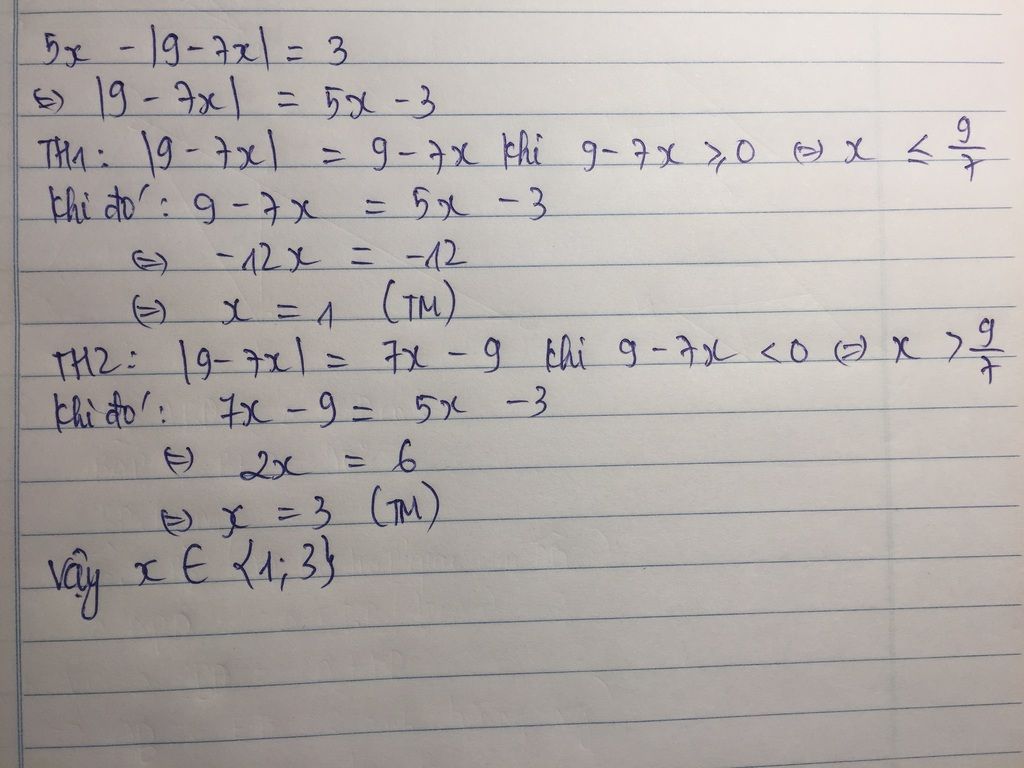 5x - |9 - 7x| = 3
⇔ |9 - 7x| = 5x - 3
TH1: |9 - 7x| = 9 - 7x khi 9 - 7x ≥ 0 ⇔ x ≤ 9/7
khi đó: 9 - 7x = 5x - 3
⇔ -12x = -12
⇔ x = 1 (TM)
TH2: |9 - 7x| = 7x - 9 khi 9 - 7x < 0 ⇔ x > 9/7
khi đó: 7x - 9 = 5x - 3
⇔ 2x = 6
⇔ x = 3 (TM)
Vậy x ∈ {1; 3}